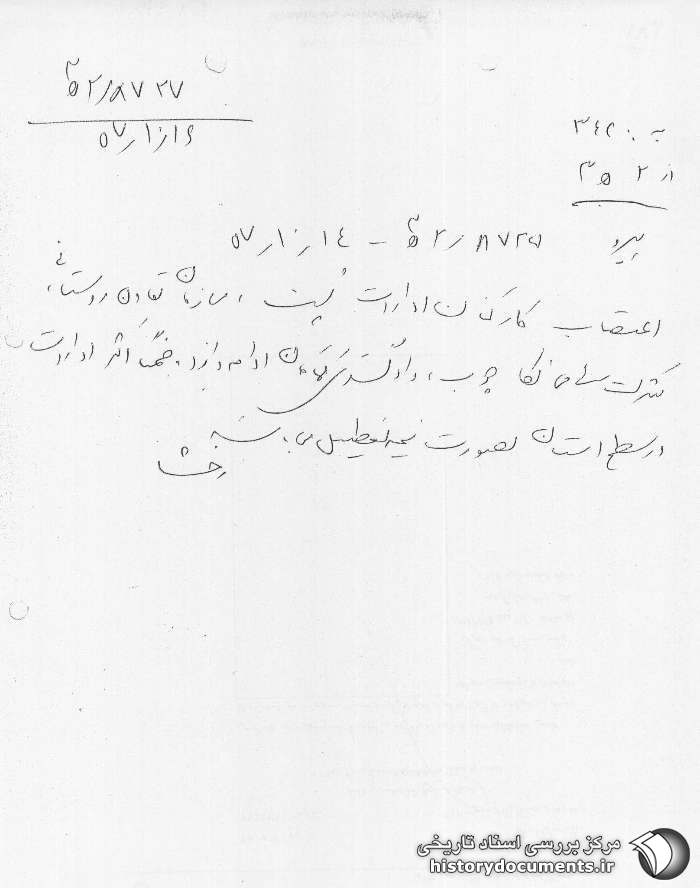 ۸۷۲۷/ھ۲
۵۷/۱۰/۱۶
به ۳۴۲۰
از ۲ ھ ۳
پیرو ۸۷۲۵/ھ۲ – ۵۷/۱۰/۱۴
اعتصاب کارکنان ادارات پست ، سازمان تعاون روستائی
شرکت سهامی نکا چوب ، دادگستری کماکان ادامه دارد . ضمناً اکثر ادارات
در سطح استان بصورت نیمه تعطیل می باشد
رخشا
مرکز بررسی اسناد تاریخی
historydocuments.ir